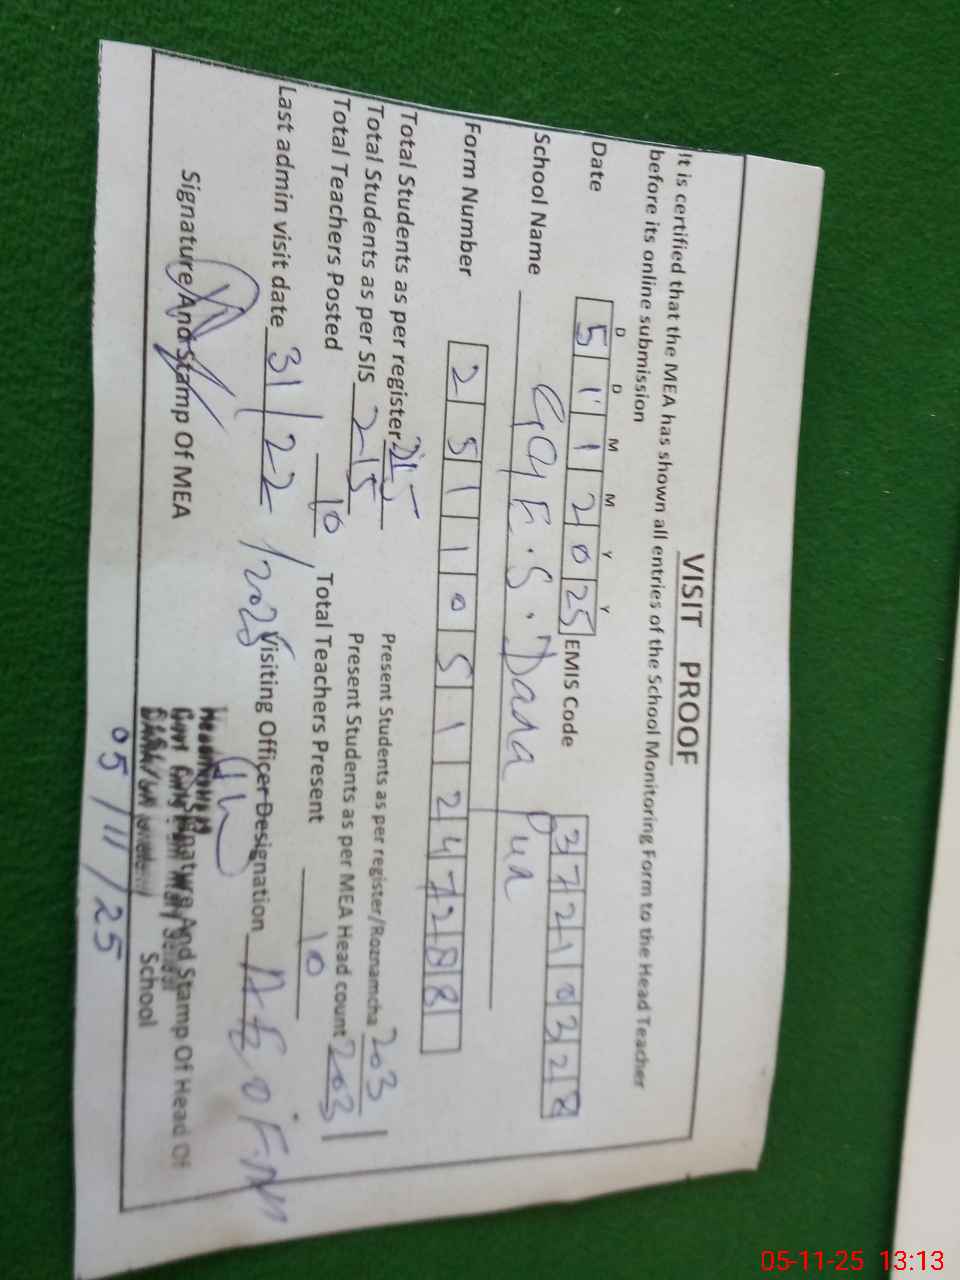 VISIT PROOF
It is certified that the MEA has shown all entries of the School Monitoring Form to the Head Teacher
before its online submission
D D M M Y Y
Date 5 1 1 2 0 25 EMIS Code 3 7 2 1 0 3 2 8
School Name GGE.S. Dana Pur
Form Number 2 5 1 1 0 5 1 2 4 7 2 8 8
Total Students as per register 215 Present Students as per register/Roznamcha 203
Total Students as per SIS 215 Present Students as per MEA Head count 203
Total Teachers Posted 10 Total Teachers Present 10
Last admin visit date 31/22/2025 Visiting Officer Designation AEO
Signature And Stamp Of MEA Signature And Stamp Of Head Of
School
05/11/25
05-11-25 13:13